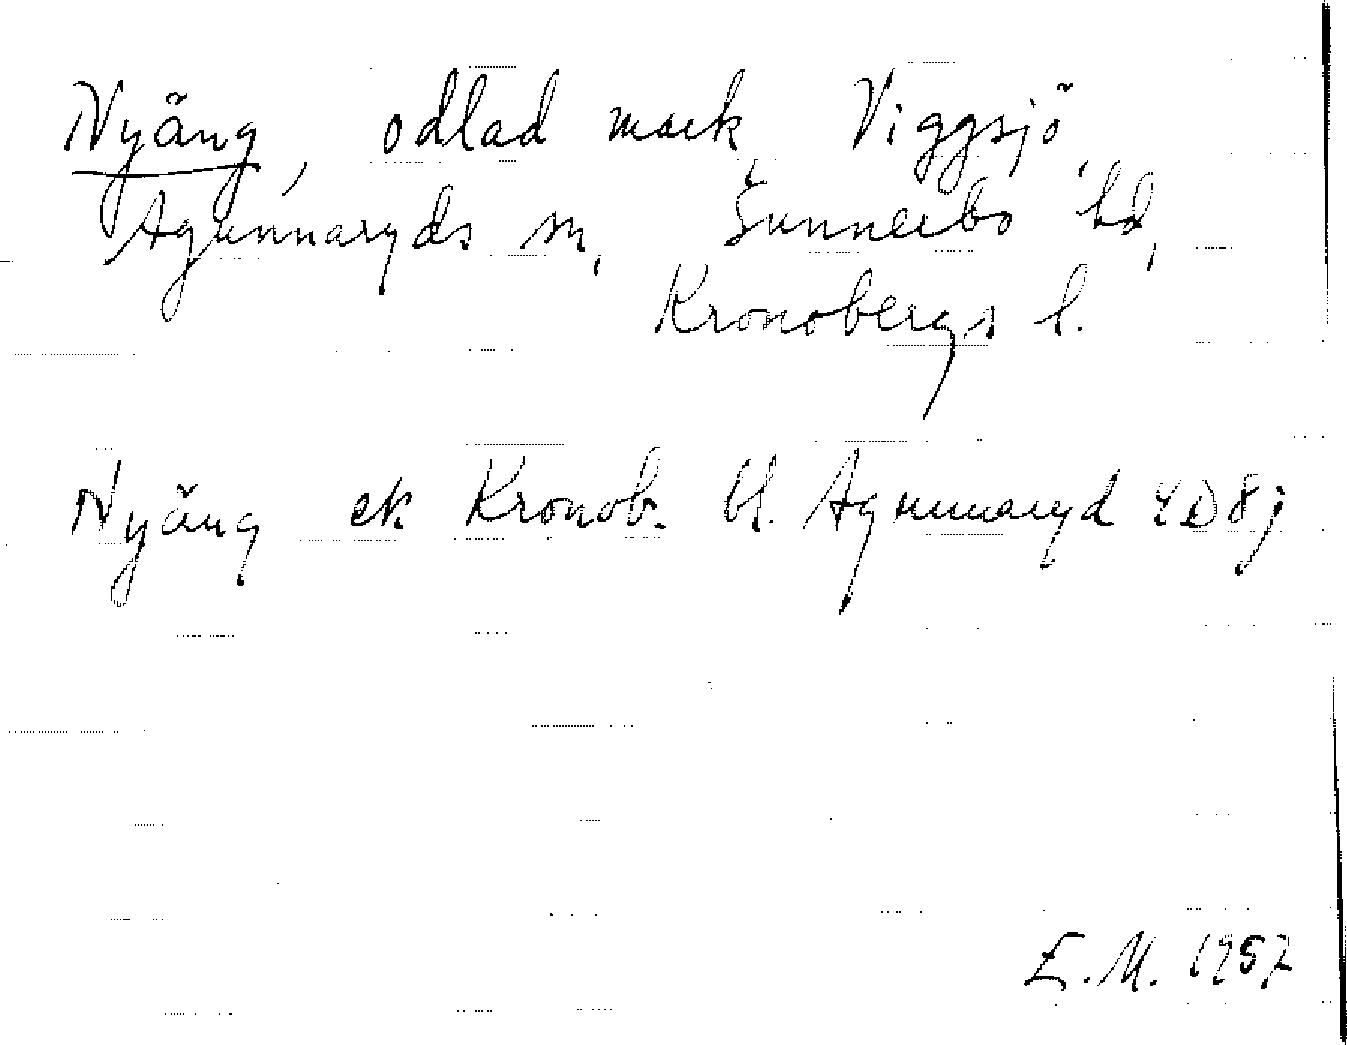 Nyäng, odlad mark, Viggsjö,
Agunnaryds sn, Sunnerbo hd,
Kronobergs l.
Nyäng ek Kronob. bl. Agunnaryd 4D8j
E.M. 1957